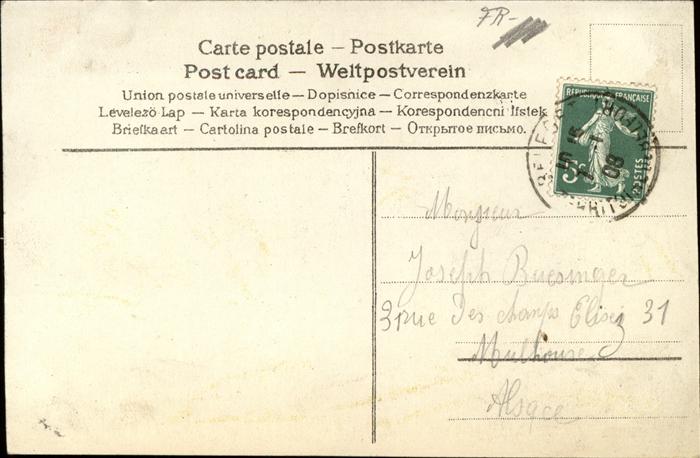 FR-
Carte postale — Postkarte
Post card — Weltpostverein
Union postale universelle — Dopisnice — Correspondenzkarte
Levelező Lap — Karta korespondencyjna — Korespondencni lístek
Briefkaart — Cartolina postale — Brefkort — Открытое письмо.
REPUBLIQUE FRANÇAISE
5c
POSTES
BELFORT
08
Monsieur
Joseph Buesinger
31 rue des champs Elisez 31
Mulhouse
Alsace